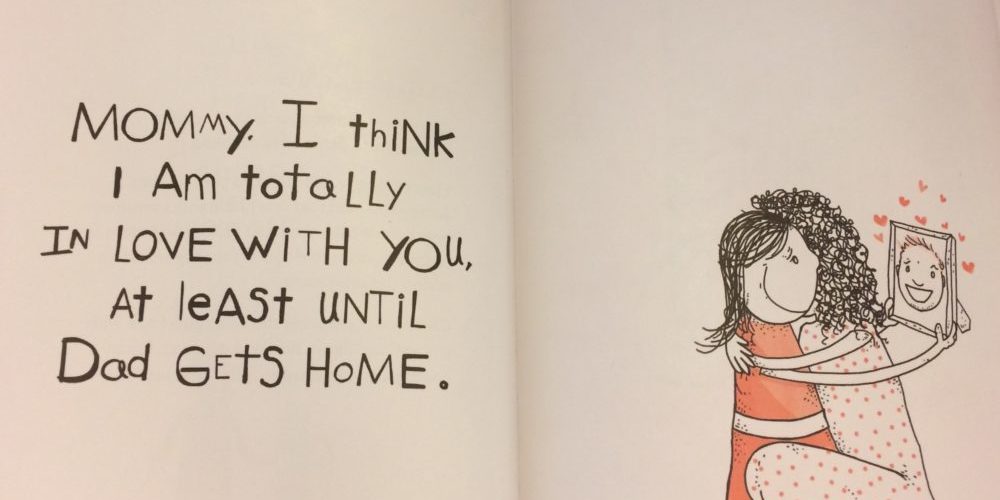 MOMMY. I thiNK
I Am totaLLy
IN LOVE WiTH YOU,
At leASt UNTiL
Dad GETS HoME.